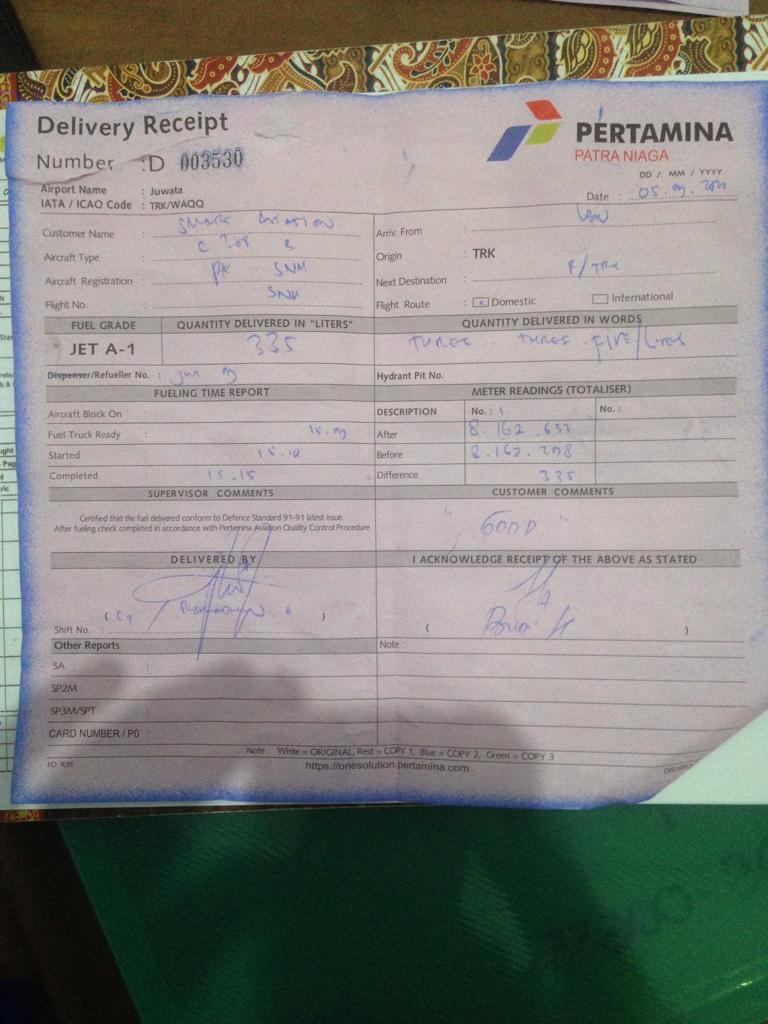 Delivery Receipt
Number : D 003530
PERTAMINA
PATRA NIAGA
Airport Name : Juwata
IATA / ICAO Code : TRK/WAQQ
DD / MM / YYYY
Date : 05.
Customer Name : SMART AVIATION
Aircraft Type : C 208 B
Aircraft Registration : PK - SNM
Flight No. : SNM
Arriv. From :
Origin : TRK
Next Destination : / TRK
Flight Route : Domestic International
FUEL GRADE QUANTITY DELIVERED IN "LITERS" QUANTITY DELIVERED IN WORDS
JET A-1 335 THREE . THREE . FIVE / LITERS
Dispenser/Refueller No. :
Hydrant Pit No.
FUELING TIME REPORT METER READINGS (TOTALISER)
Aircraft Block On : DESCRIPTION No. : 1 No. :
Fuel Truck Ready : 15. After 8.162.633
Started : 15.10 Before 8.162.298
Completed : 15.15 Difference 335
SUPERVISOR COMMENTS CUSTOMER COMMENTS
Certified that the fuel delivered conform to Defence Standard 91-91 latest issue.
After fueling check completed in accordance with Pertamina Aviation Quality Control Procedure
"GOOD"
DELIVERED BY I ACKNOWLEDGE RECEIPT OF THE ABOVE AS STATED
( ) ( )
Shift No. :
Other Reports Note :
SA :
SP2M :
SP3M/SPT :
CARD NUMBER / PO :
Note : White = ORIGINAL, Red = COPY 1, Blue = COPY 2, Green = COPY 3
https://onesolution.pertamina.com